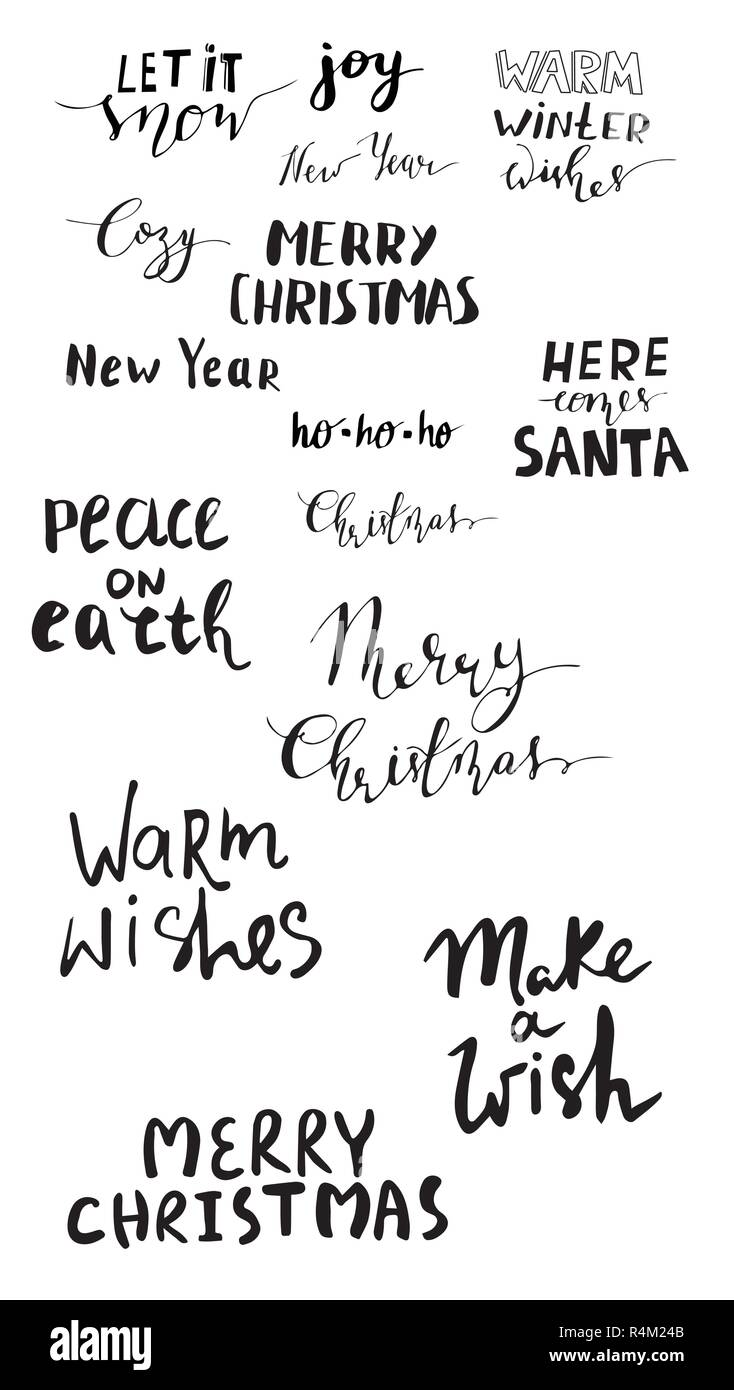 LET iT
snow
joy
WARM
WiNtER
wishes
New Year
Cozy
MERRY
CHRISTMAS
New Year
HERE
comes
SANTA
ho-ho-ho
Peace
ON
earth
Christmas
Merry
Christmas
Warm
wishes
Make
a
Wish
MERRY
CHRISTMAS
alamy
Image ID: R4M24B
www.alamy.com